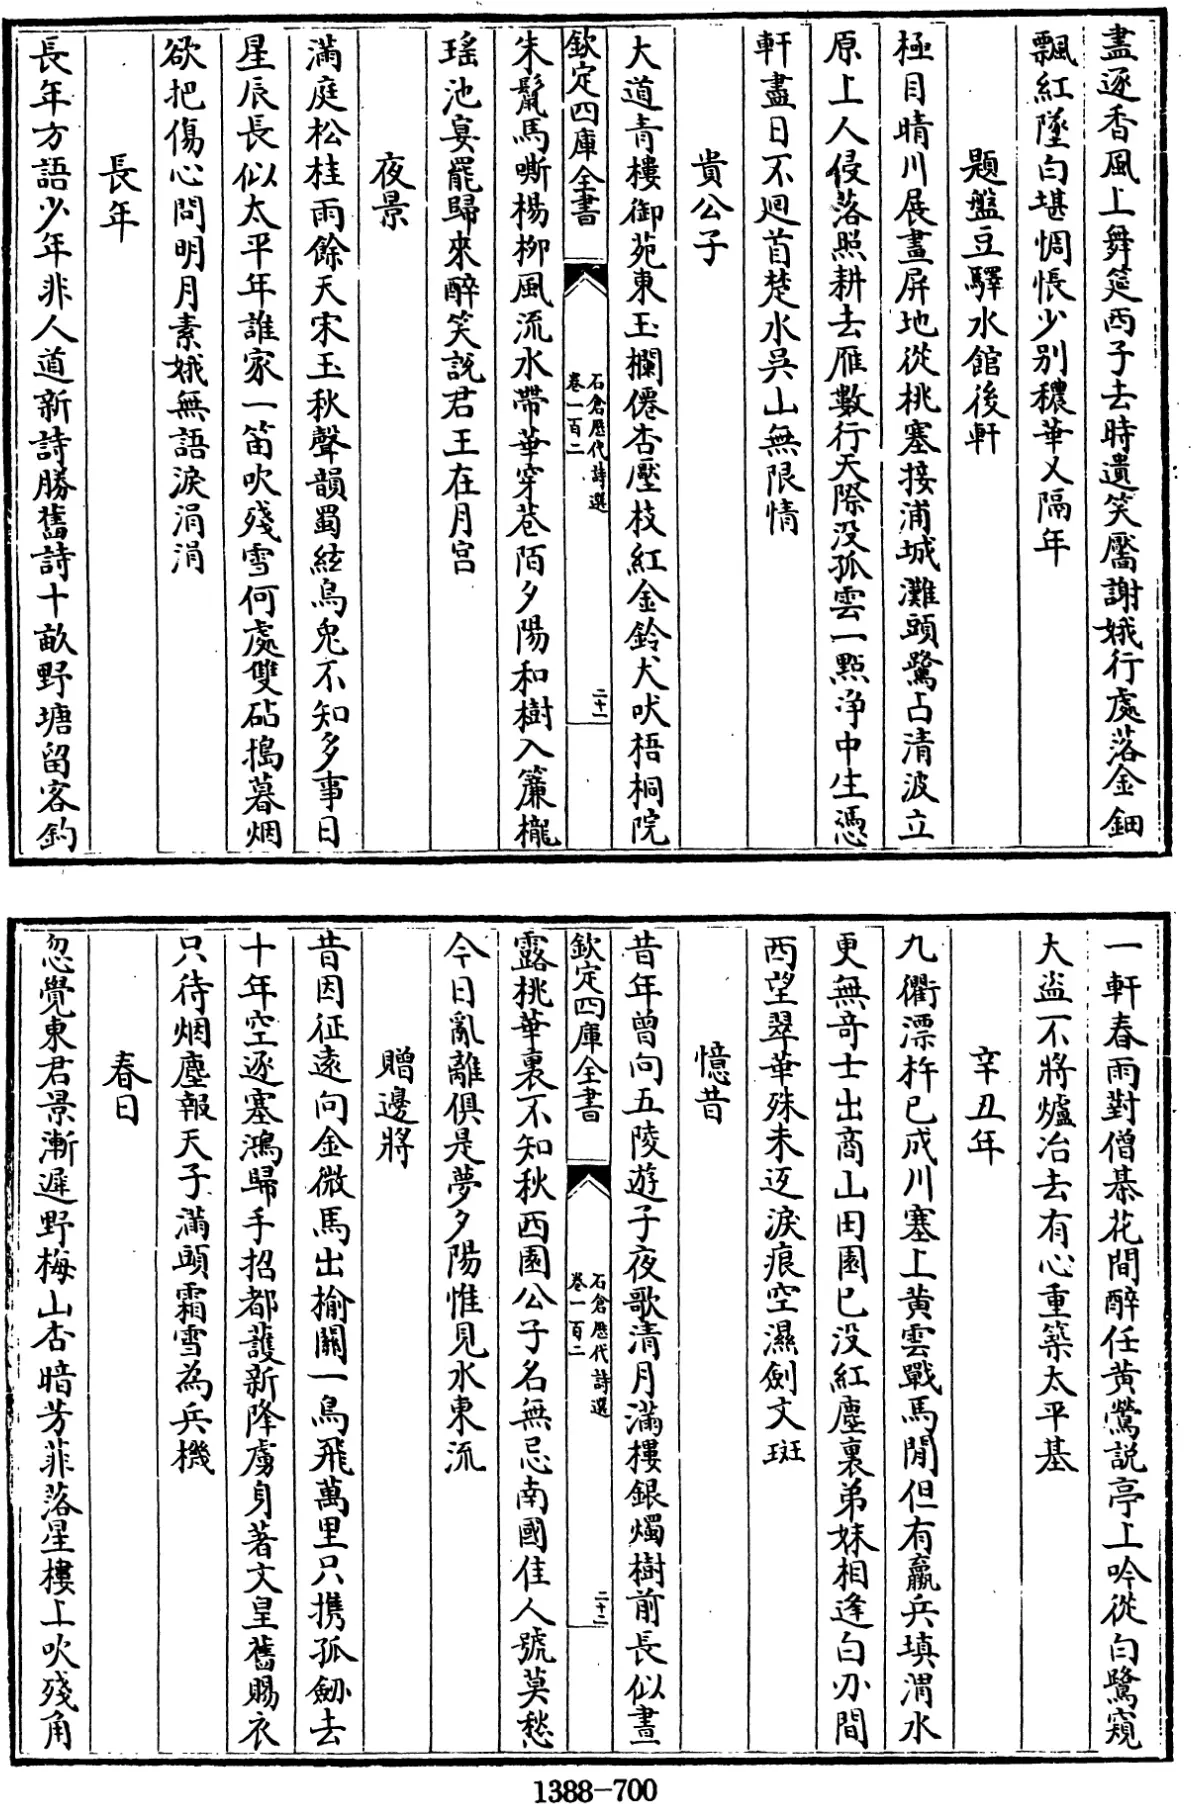 盡逐香風上舞筵西子去時遺笑靨謝娥行處落金鈿
飄紅墜白堪惆悵少别穠華又隔年
題盤豆驛水館後軒
極目晴川展畫屏地從桃塞接浦城灘頭鷺占清波立
原上人侵落照耕去雁數行天際没孤雲一點浄中生憑
軒盡日不迴首楚水吳山無限情
貴公子
大道青樓御苑東玉欄僊杏壓枝紅金鈴犬吠梧桐院
欽定四庫全書
石倉歷代詩選
卷一百二
二十一
朱鬣馬嘶楊柳風流水帶華穿巷陌夕陽和樹入簾櫳
瑶池宴罷歸來醉笑説君王在月宫
夜景
滿庭松桂雨餘天宋玉秋聲韻蜀絃烏兎不知多事日
星辰長似太平年誰家一笛吹殘雪何處雙砧搗暮烟
欲把傷心問明月素娥無語淚涓涓
長年
長年方語少年非人道新詩勝舊詩十畝野塘留客釣
一軒春雨對僧棊花間醉任黄鶯説亭上吟從白鷺窺
大盗不將爐冶去有心重築太平基
辛丑年
九衢漂杵已成川塞上黄雲戰馬閒但有羸兵填渭水
更無奇士出商山田園已没紅塵裏弟妹相逢白刃間
西望翠華殊未返淚痕空濕劍文斑
憶昔
昔年曾向五陵遊子夜歌清月滿樓銀燭樹前長似晝
欽定四庫全書
石倉歷代詩選
卷一百二
二十二
露桃華裏不知秋西園公子名無忌南國佳人號莫愁
今日亂離俱是夢夕陽惟見水東流
贈邊將
昔因征遠向金微馬出榆關一鳥飛萬里只攜孤劒去
十年空逐塞鴻歸手招都護新降虜身著文皇舊賜衣
只待烟塵報天子滿頭霜雪為兵機
春日
忽覺東君景漸遲野梅山杏暗芳菲落星樓上吹殘角
1388-700